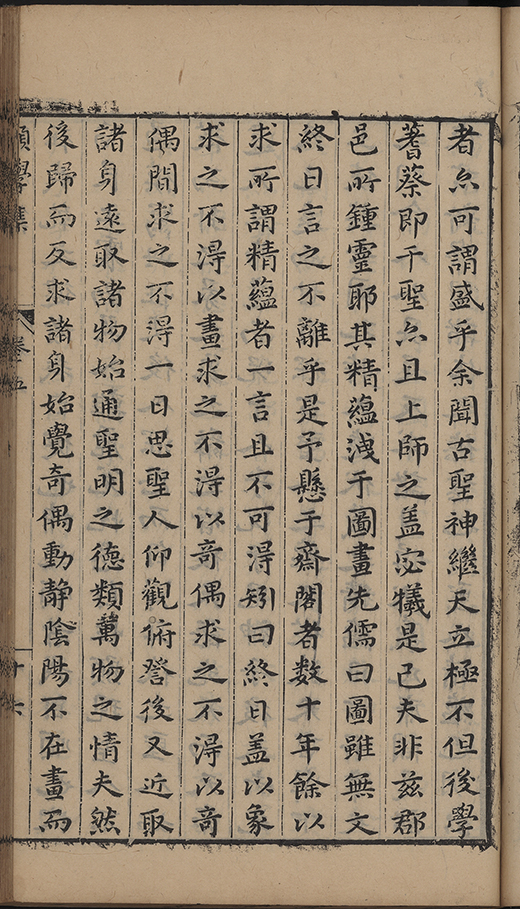 者亦可謂盛乎余聞古聖神繼天立極不但後學
蓍蔡即千聖亦且上師之盖宓犧是已夫非兹郡
邑所鍾靈耶其精蘊洩于圖畫先儒曰圖雖無文
終日言之不離乎是予懸于齋閣者数十年餘以
求所謂精蘊者一言且不可得矧曰終日盖以象
求之不得以畫求之不得以竒偶求之不得以竒
偶間求之不得一日思聖人仰觀俯詧後又近取
諸身遠取諸物始通聖明之德類萬物之情夫然
後歸而反求諸身始覺奇偶動靜陰陽不在畫而
學集
卷五
十六